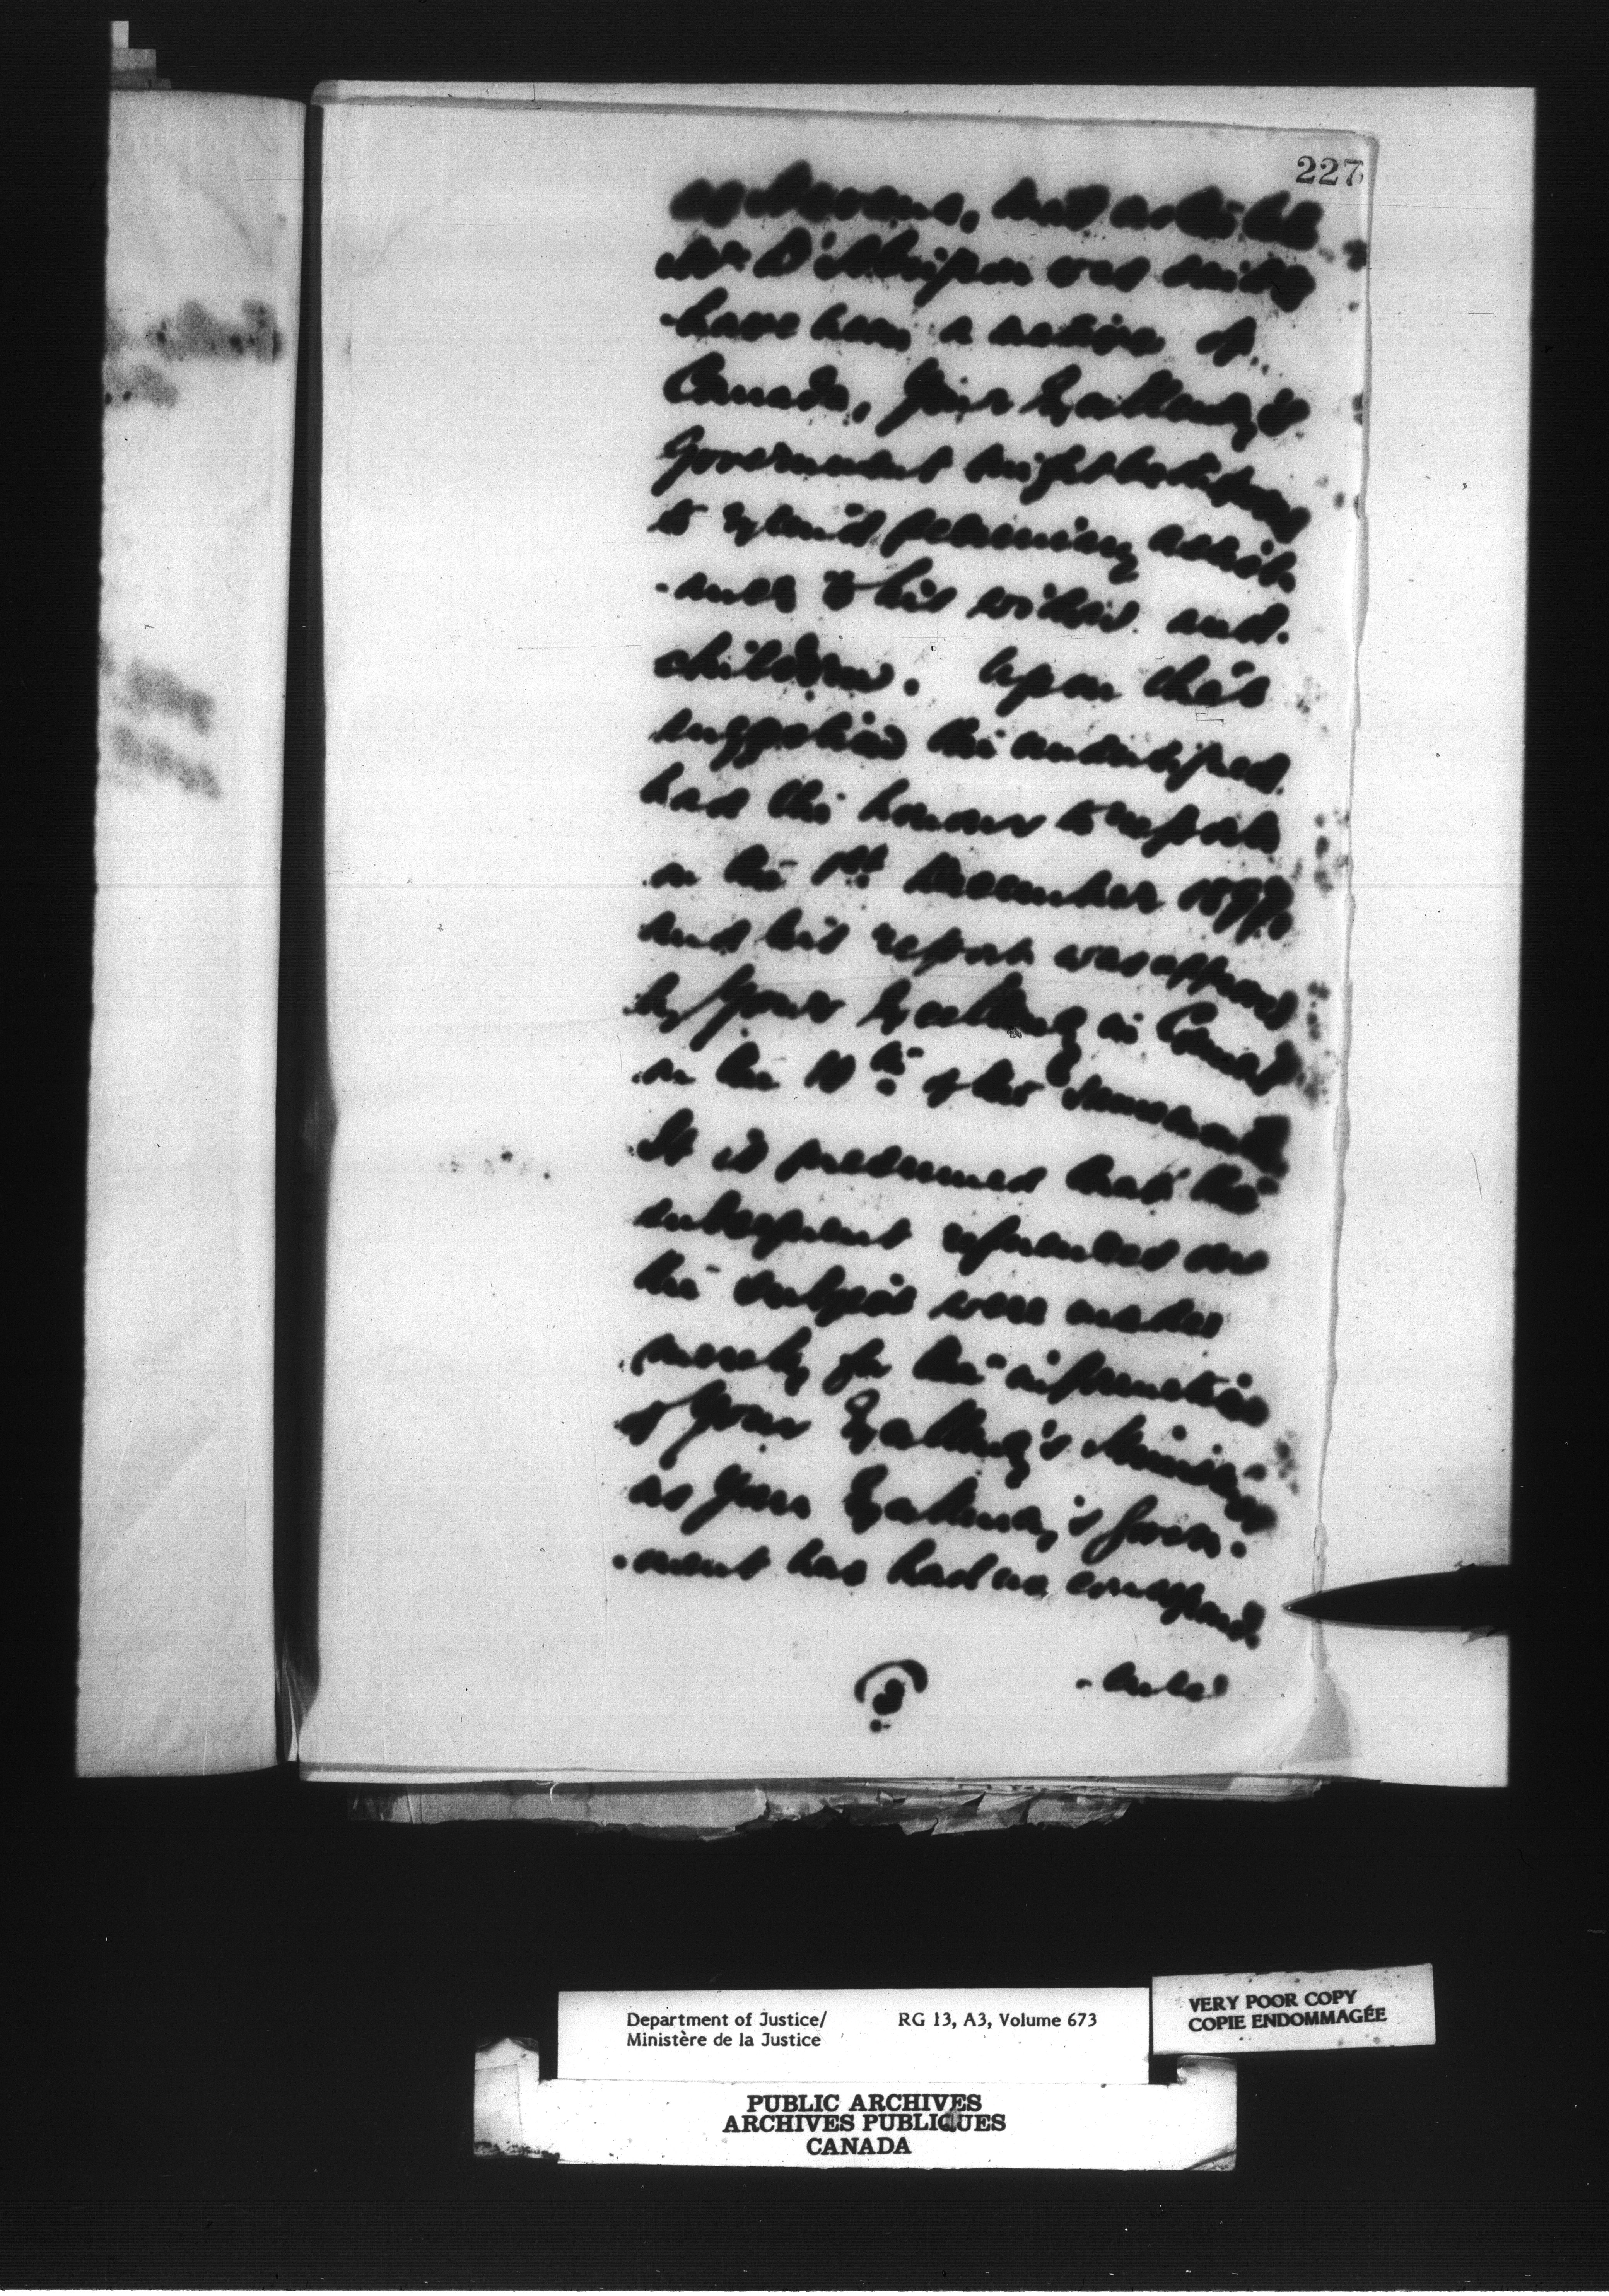 227
that as the late
Mr D' was said to
have been a native of
Canada, Your Excellency's
Government might be disposed
to extend pecuniary assist-
-ance to his widow and
children. Upon this
suggestion the undersigned
had the honour to report
on the 1st December 1897,
and his report was approved
by Your Excellency in Council
on the 10th of the same month
It is presumed that the
subsequent references on
the subject were made
merely for the information
of Your Excellency's Ministers
as Your Excellency's Govern-
-ment has had no correspond-
-ence
Department of Justice/
Ministère de la Justice
RG 13, A3, Volume 673
VERY POOR COPY
COPIE ENDOMMAGÉE
PUBLIC ARCHIVES
ARCHIVES PUBLIQUES
CANADA